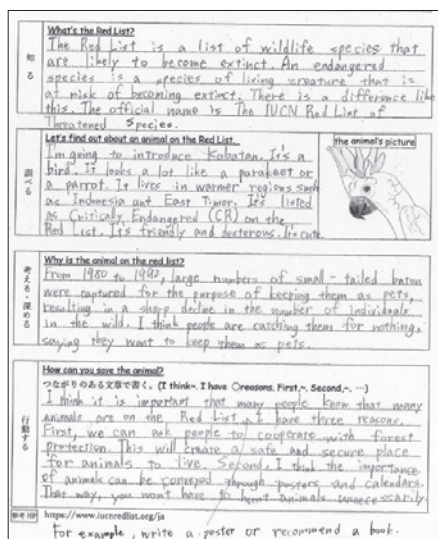 知る
What's the Red List?
The Red List is a list of wildlife species that
are likely to become extinct. An endangered
species is a species of living creature that is
at risk of becoming extinct. There is a difference like
this. The official name is The IUCN Red List of
Threatened Species.
調べる
Let's find out about an animal on the Red List.
I'm going to introduce Kobatan. It's a
bird. It looks a lot like a parakeet or
a parrot. It lives in warmer regions such
as Indonesia and East Timor. It's listed
as Critically Endangered (CR) on the
Red List. It's friendly and dexterous. It's cute.
the animal's picture
考える・深める
Why is the animal on the red list?
From 1980 to 1992, large numbers of small-tailed batan
were captured for the purpose of keeping them as pets,
resulting in a sharp decline in the number of individuals
in the wild. I think people are catching them for nothing,
saying they want to keep them as pets.
行動する
How can you save the animal?
つながりのある文章で書く。(I think~. I have ○reasons. First,~. Second,~. …)
I think it is important that many people know that many
animals are on the Red List. I have three reasons.
First, we can ask people to cooperate with forest
protection. This will create a safe and secure place
for animals to live. Second, I think the importance
of animals can be conveyed through posters and calendars.
That way, you won't have to hunt animals unnecessarily.
参考HP https://www.iucnredlist.org/ja
For example, write a poster or recommend a book.